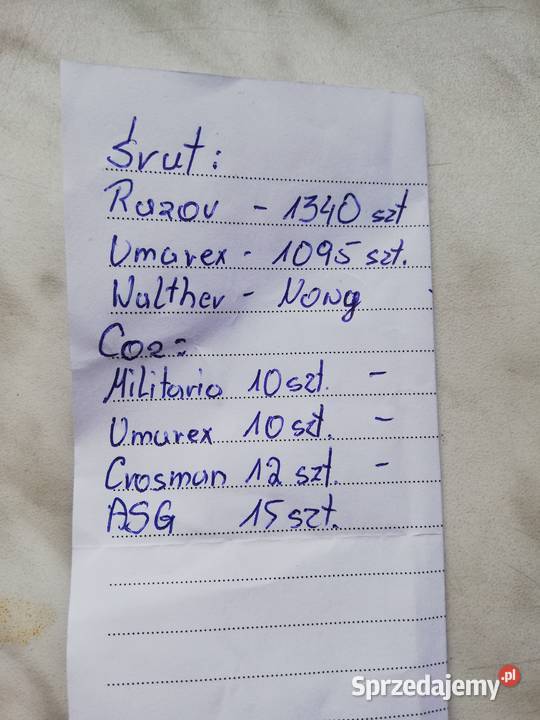 Śrut:
Razov - 1340 szt
Umarex - 1095 szt.
Walther - Nowy
Co2:
Militaria 10 szt. -
Umarex 10 szt. -
Crosman 12 szt. -
ASG 15 szt.
Sprzedajemy.pl